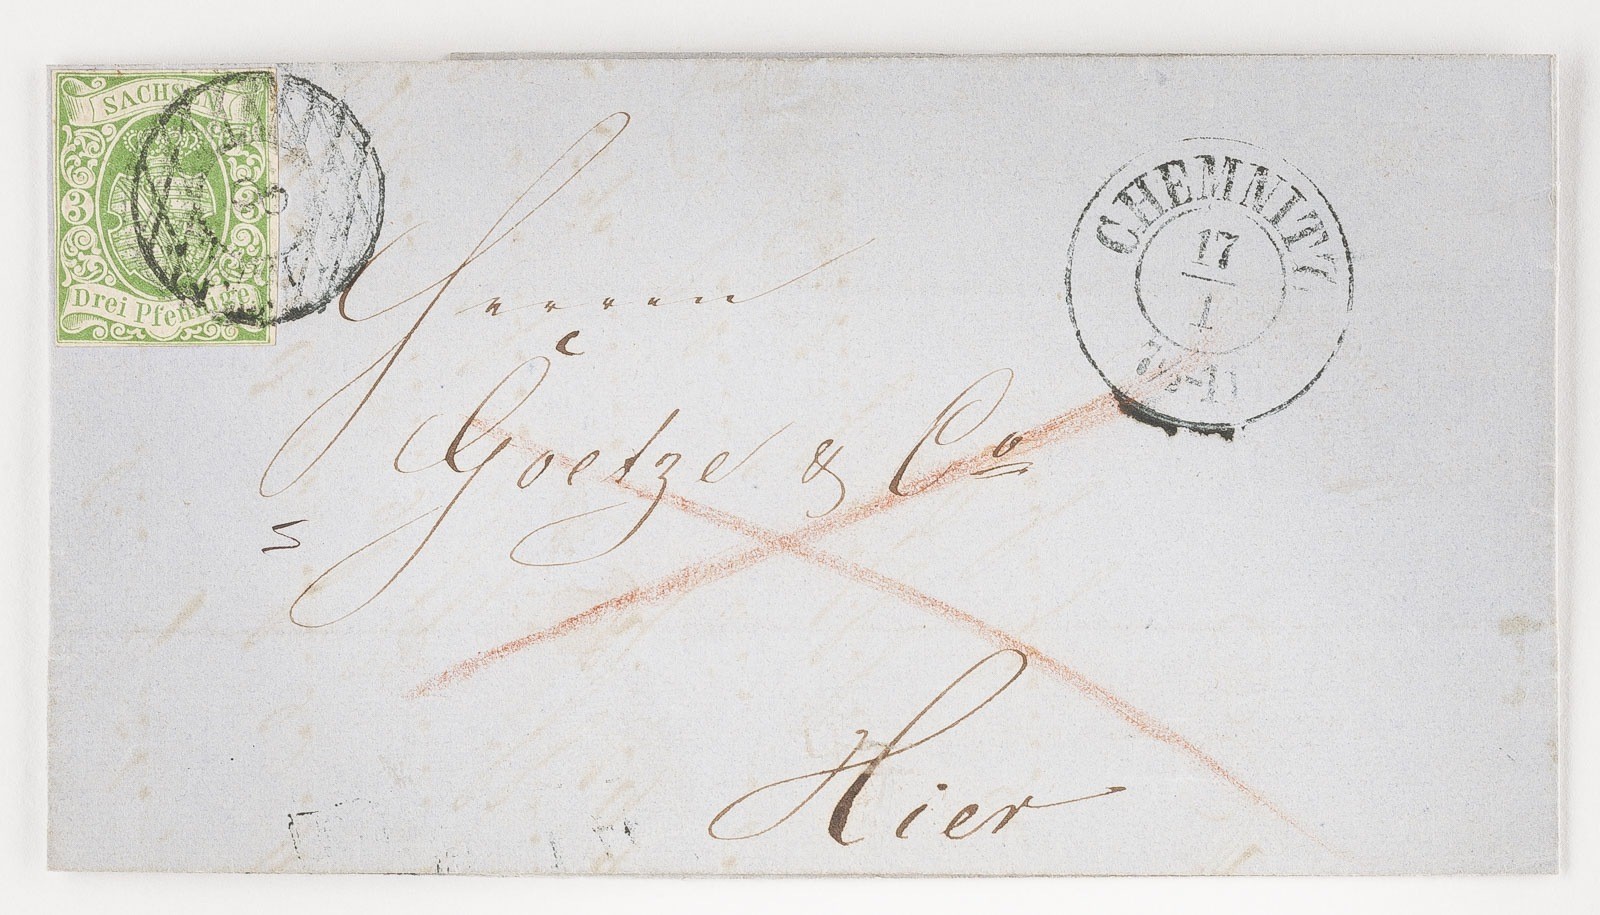 SACHSEN
3 3
Drei Pfennige
CHEMNITZ
17
1
Herren
Goetze & Co
Hier